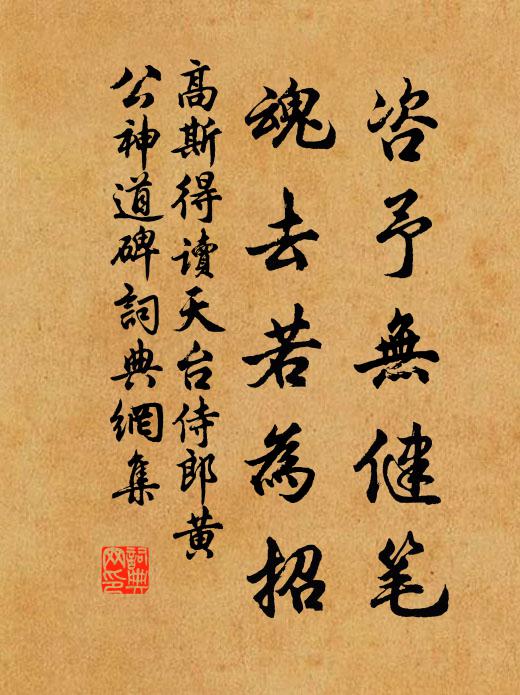 咨予無健笔
魂去若為招
高斯得讀天台侍郎黄
公神道碑詞典網集
詞典網印